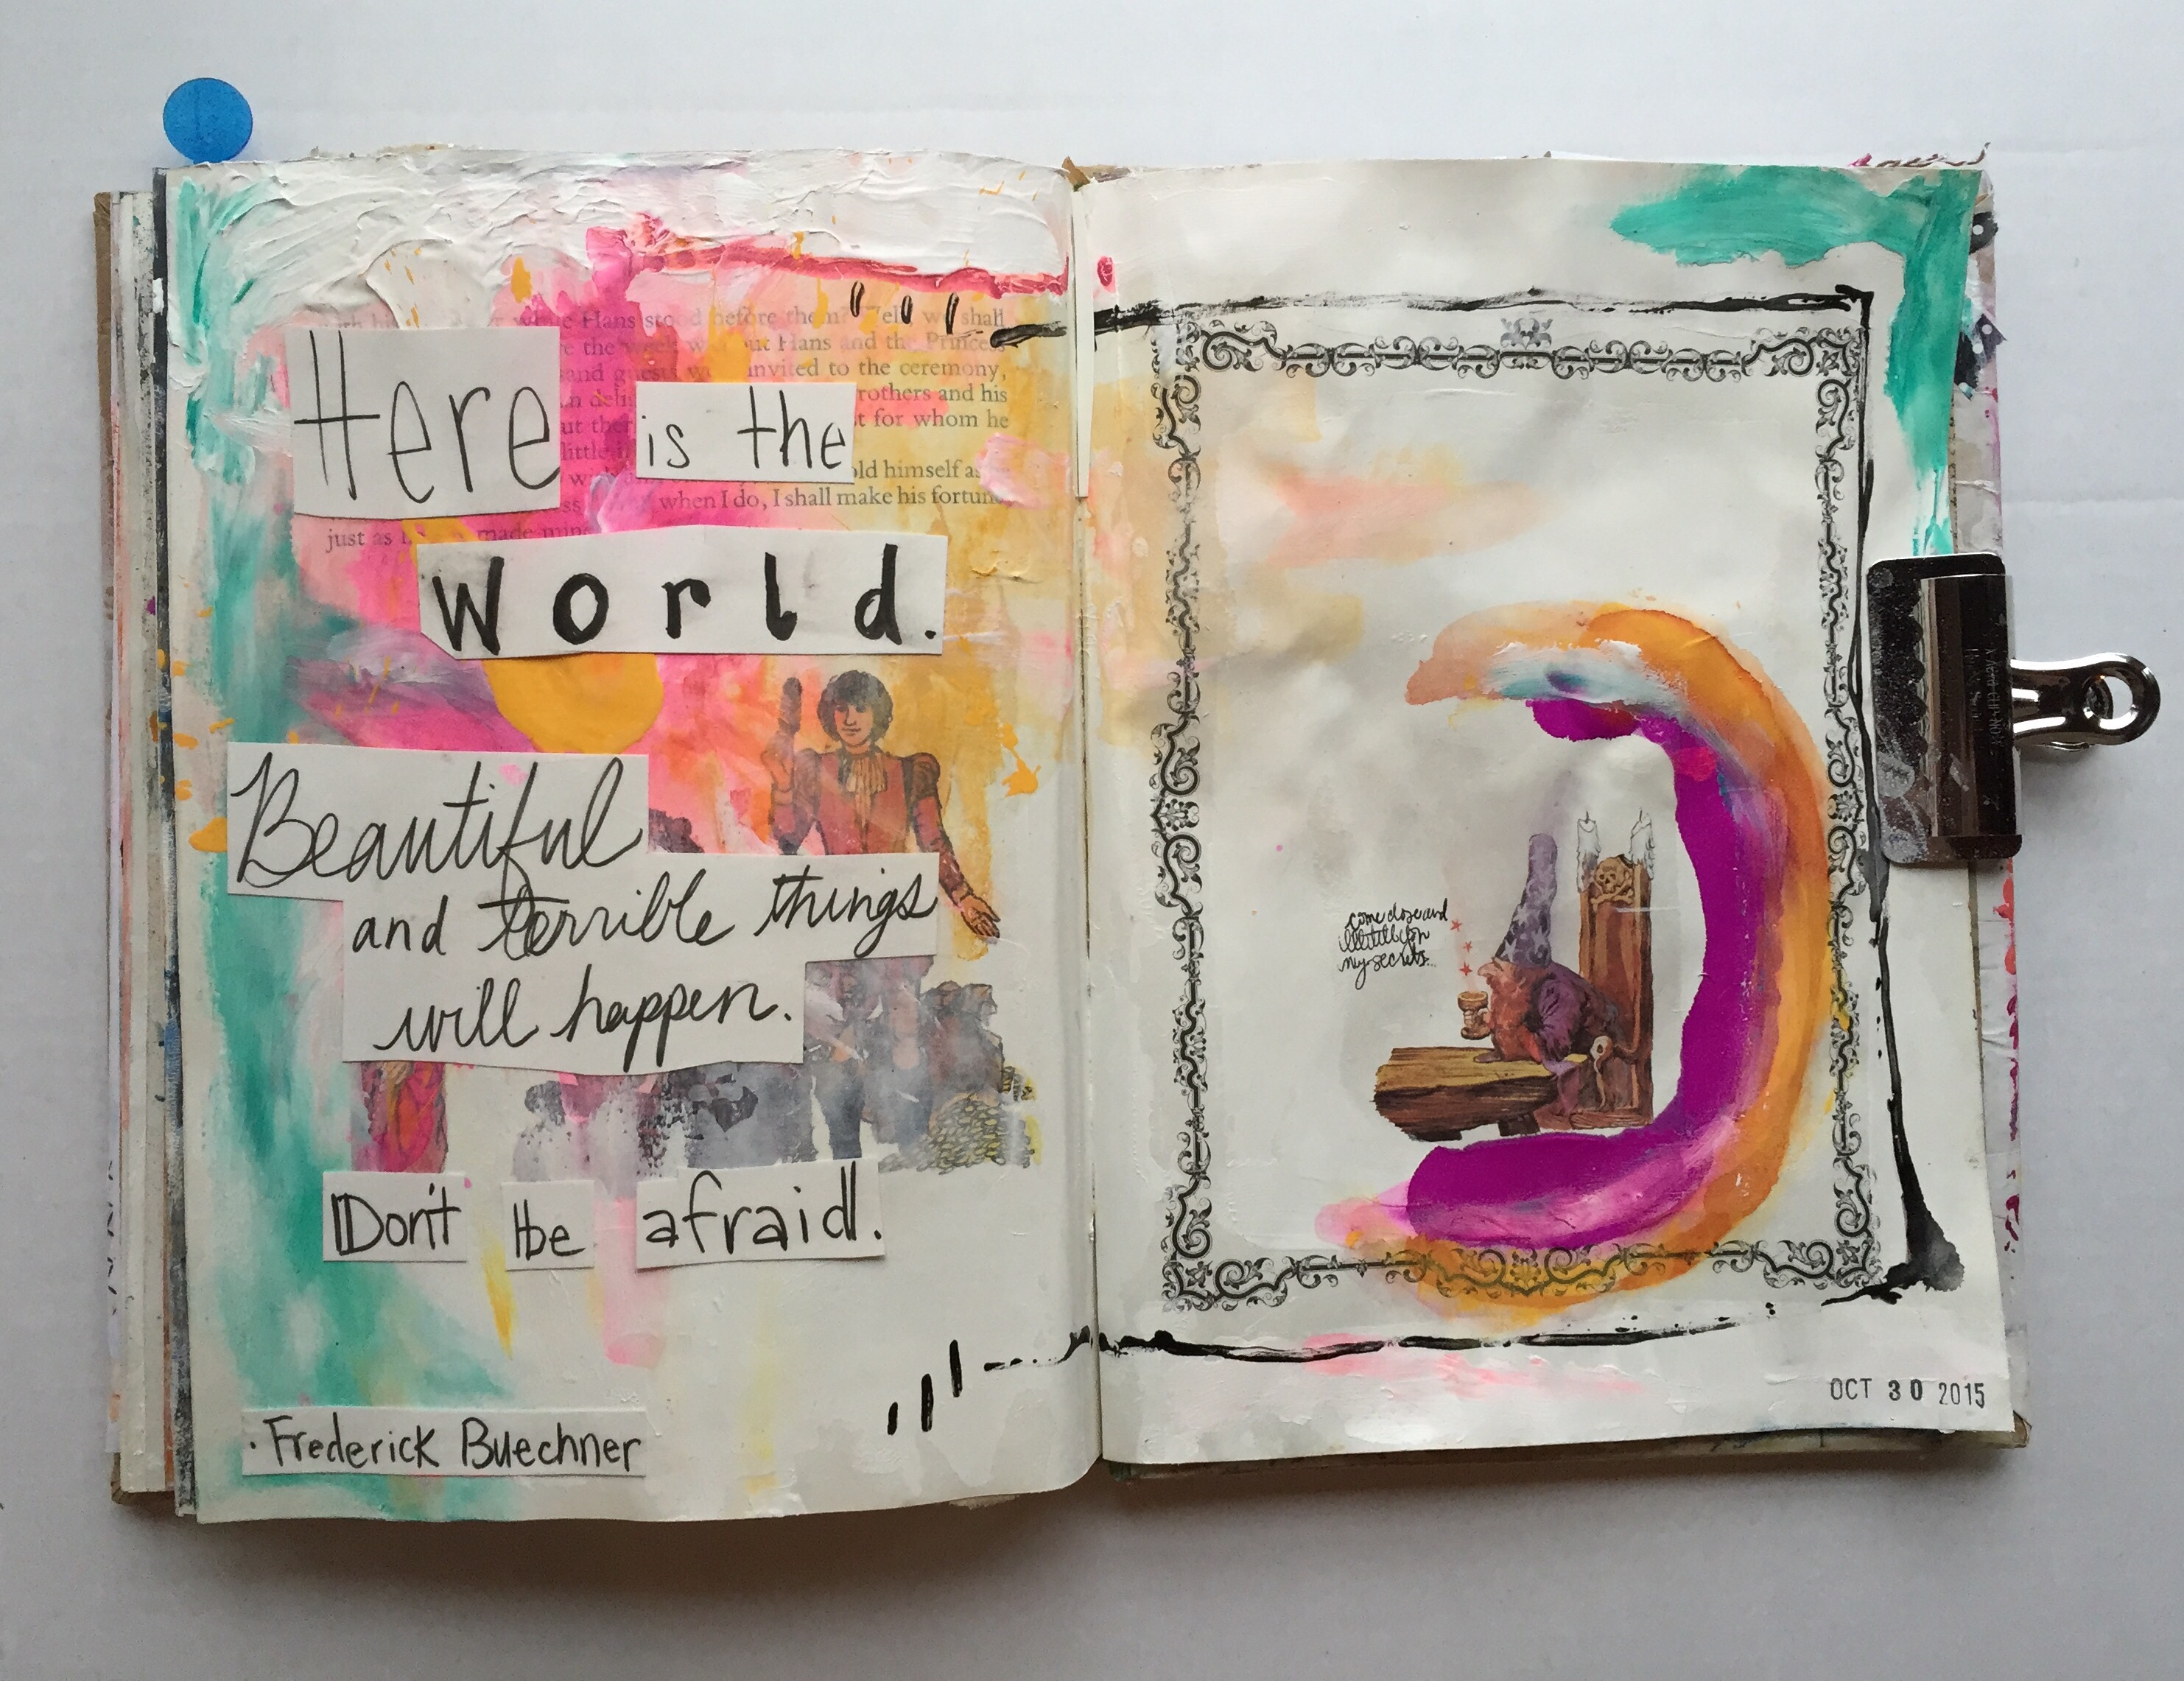 Hans stood before them? "Well, we shall
the week without Hans and the Princess
and guests were invited to the ceremony,
rothers and his
ut ther
t for whom he
little
old himself as
when I do, I shall make his fortune
just as
made
Here is the
World.
Beautiful
and terrible things
will happen.
Don't be afraid.
· Frederick Buechner
come close and
my secrets.
OCT 30 2015